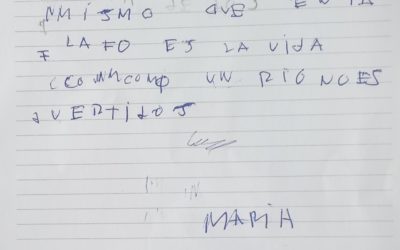 NMISMO QUE EN LA
F LA FO ES LA VIDA
COMO UN RIO NO ES
dVERTidOS
MARIA